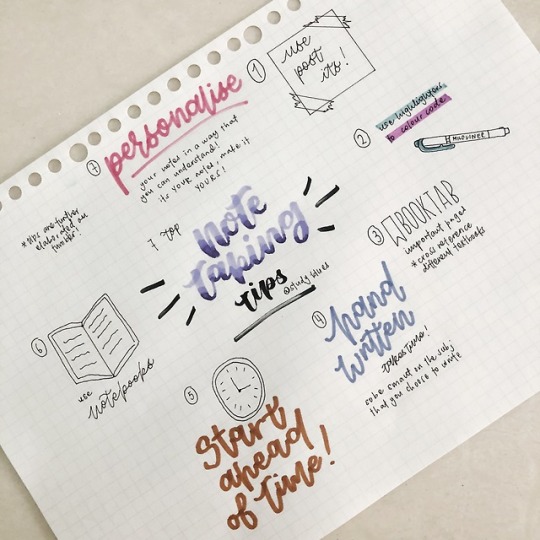 7 top
note
taking
tips
@study.blues
1
use
post
its!
2
use highlighters
to colour code
MILDLINER
3
BOOKTAB
important pages
*cross reference
different textbooks
4
hand
written
takes time!
so be smart on the subj
that you choose to write
5
Start
ahead
of time!
6
use
notebooks
7
personalise
your notes in a way that
you can understand!
its YOUR notes, make it
YOURS!
*tips are further
elaborated on
tumblr!